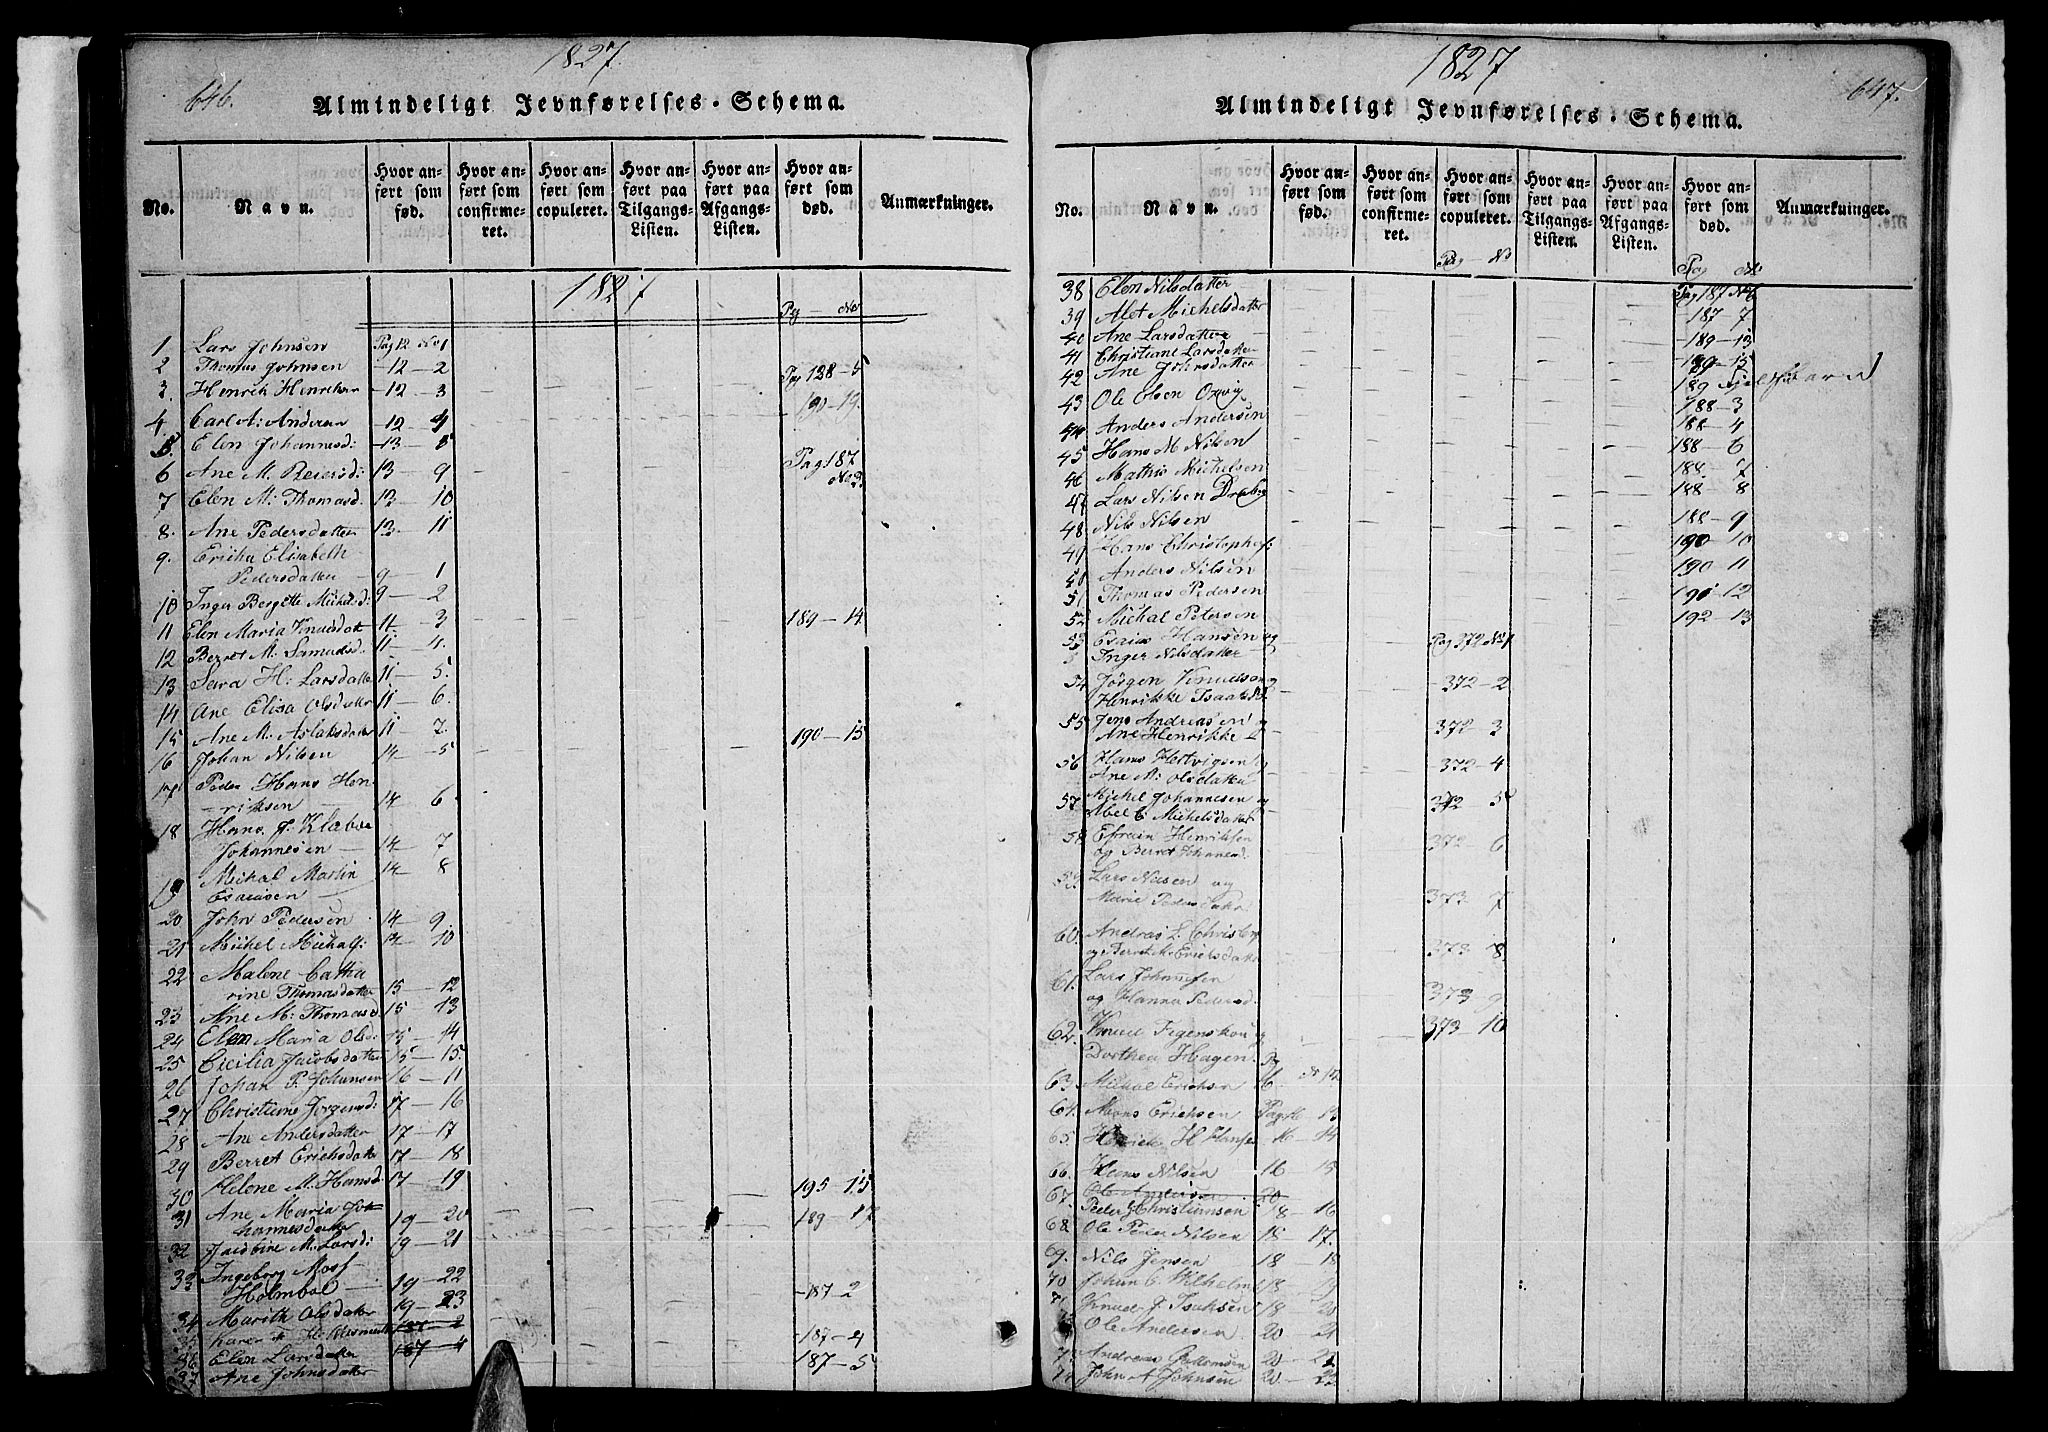 1827.
646.
Almindeligt Jevnførelses-Schema.
No.
Navn.
Hvor anført som fød.
Hvor anført som confirmeret.
Hvor anført som copuleret.
Hvor anført paa Tilgangs-Listen.
Hvor anført paa Afgangs-Listen.
Hvor anført som død.
Anmærkninger.
1827
Pg — No
1 Lars Johnsen Pag 12 No 1
2 Thomas Johnsen -12 - 2
3. Henrik Henriksen -12 - 3 Pg 128-5
4. Carl A: Andersen -12 - 4 190-19.
5. Elen Johannesd: -13 - 8
6 Ane M. Beiersd: 13 - 9 Pag: 187 No 3
7 Elen M: Thomasd. 12 10
8. Ane Pedersdatter 12 - 11
9. Ericha Elisabeth
Pedersdatter 9 - 1
10 Inger Bergitte Michelsd: 9 - 2
11 Elen Maria Knudsdatt 11 - 3 189-14
12 Berret M. Samuelsd. 11 - 4.
13 Sara H: Larsdatter 11 - 5.
14 Ane Elisa Olsdatter 11 - 6.
15 Ane M. Aslaksdatter 11 - 7. 190-15
16 Johan Nilsen 14 - 5
17 Peder Hans Hen-
riksen 14 6.
18 Hans J. Klaboe
Johannesen 14 - 7
19 Michal Martin 14 8
Esaiasen
20 John Pedersen 14 - 9.
21 Michel Michals: 14 - 10
22 Malene Catha
rine Thomasdatter 15 - 12
23 Ane M: Thomasd. 15 13
24 Elen Maria Olsd: 15 - 14
25 Cicilia Jacobsdatter 15 - 15.
26 Johan P. Johansen 16 - 11
27 Christiane Jorgensd: 17 - 16
28 Ane Andersdatter 17 - 17
29 Berret Erichsdatter 17 - 18
30 Helene M. Hansd. 17 - 19 195-15
31 Ane Maria Jo-
hannesdatter 19 - 20 189-17
32 Jacobine M. Larsd: 19 - 21
33 Ingeborg Moss
Holmboe 19 - 22 -187-2
34 Marith Olsdatter 19 - 23
35 Karen 187-2 -187-4
36 Elen Larsdatter 187-4 187-5
37 Ane Johnsdatter
1827
647.
Almindeligt Jevnførelses-Schema.
No.
Navn.
Hvor anført som fød.
Hvor anført som confirmeret.
Hvor anført som copuleret.
Hvor anført paa Tilgangs-Listen.
Hvor anført paa Afgangs-Listen.
Hvor anført som død.
Anmærkninger.
Pag — No
Pag No
38 Elen Nilsdatter Pag 187 No 6
39 Alet Michelsdatter 187 7
40 Ane Larsdatter -189-13
41 Christiane Larsdatter -189-15
42 Ane Johnsdatter 189
43 Ole Olsen Orvig 188-3
44 Anders Andersen 188-4
45 Hans M Nilsen 188-6
46 Mathis Michelsen 188-7
47 Lars Nilsen 188-8
48 Nils Nilsen 188-9
49 Hans Christophs: 190-10
50 Anders Nilsen 190 11
51 Thomas Pedersen 191-12
52 Michal Petersen 192 13
53 Esaias Hansen og Pag 372 No 1
Inger Nilsdatter
54 Jörgen Knudsen og 372-2
Henrikke Isaaksd.
55 Jens Andreasen og
Ane Henrikke 372-3
56 Hans Hetvigsen og 372-4
Ane M: Olsdatter
57 Michel Johannesen og 372 5
Abel C Michelsdatter
58 Efraim Henriksen
og Berret Johannesd. 372-6
59 Lars Nilsen og
Marie Pedersdatter 373 7
60. Andras L. Christop
og Berret M. Ericksdatter 373 8
61. Lars Johannesen
og Hanna Pedersd. 373-9
62. Knud Figenskou og 373-10
Dorthea Hagen Pg
63. Michal Erichsen 16 No 12
64. Mons Erichsen Pag 16 13
65. H Hansen 16-14
66. Hans Nilsen 16-15
67. Ole Andersen 20
Peder Christiansen 18-16
68 Ole Peder Nilsen 18-17.
69. Nils Jensen 18-18
70 Johan C Wilhelms 18-19
Knud J. Isaksen 18-20
Ole Andersen 20-21
Andreas 20-22
John A Johnsen 20-23